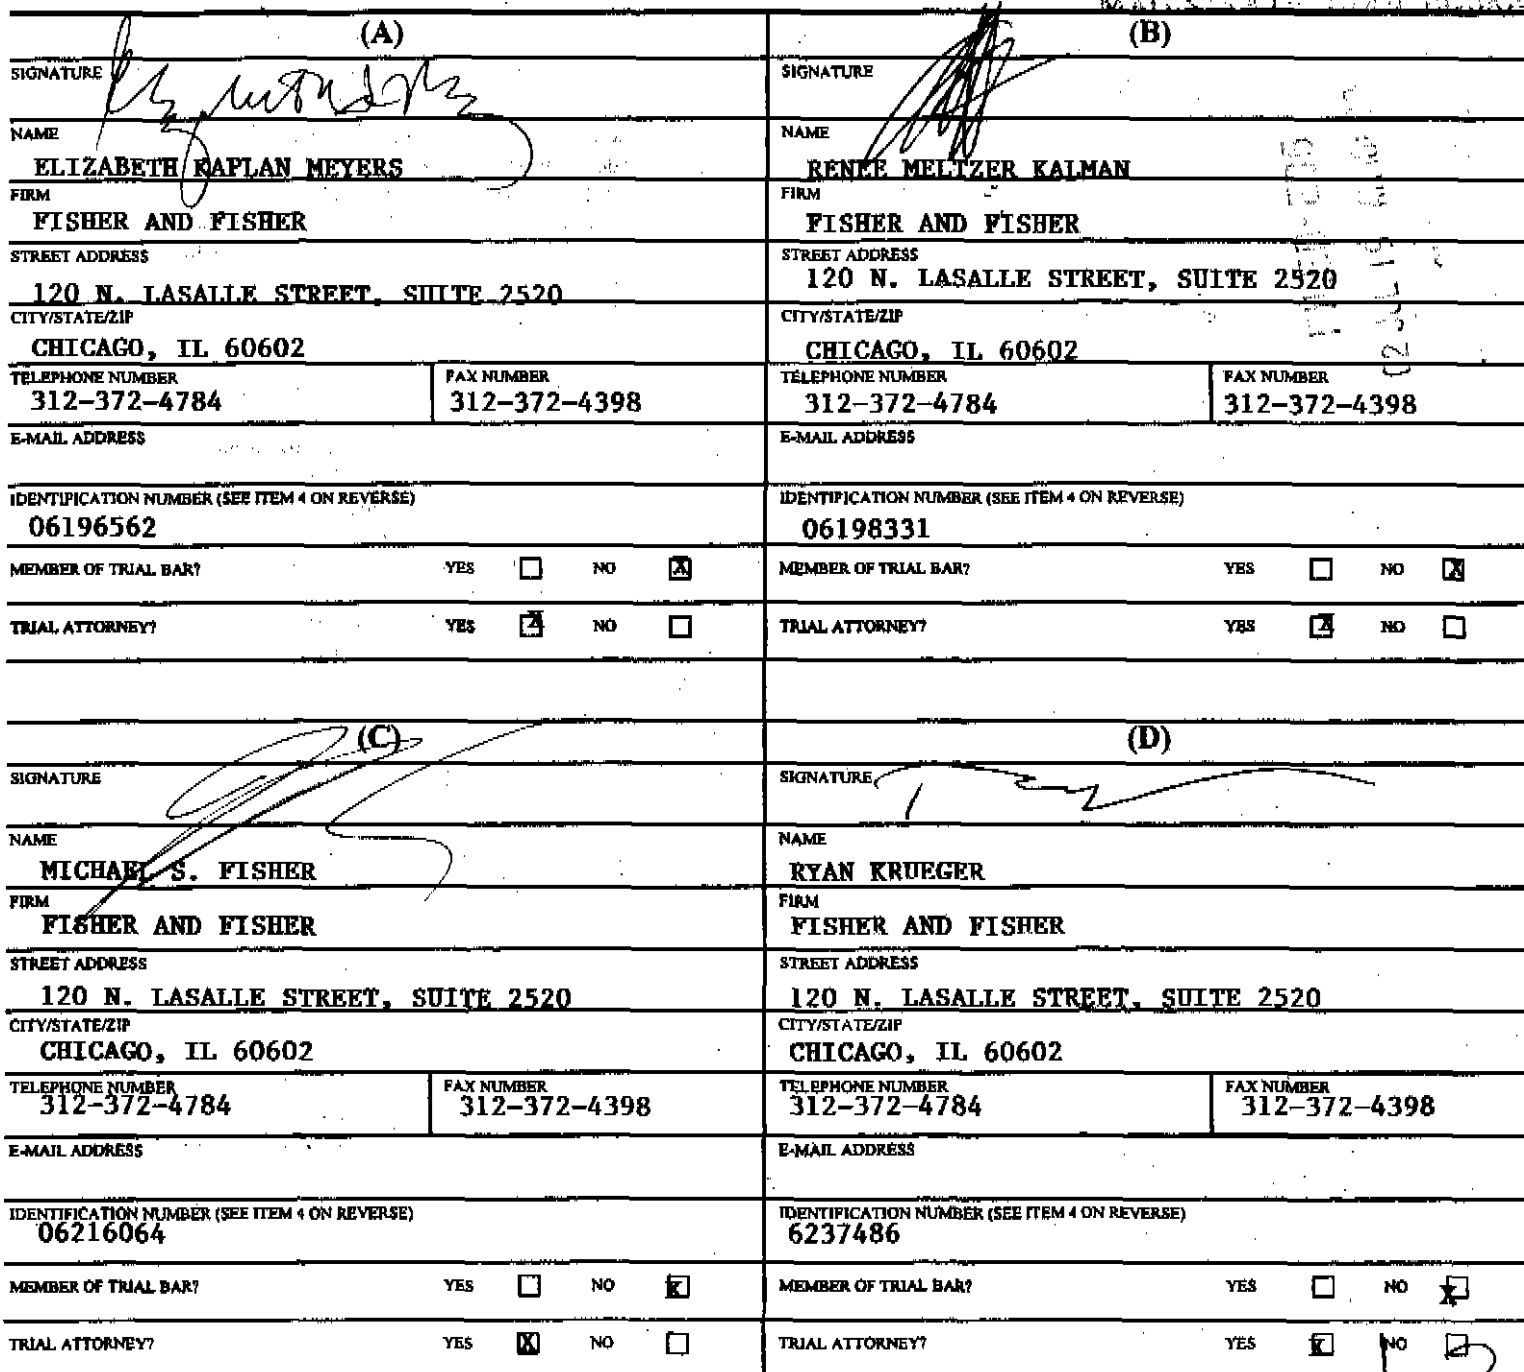 (A)
SIGNATURE
NAME
ELIZABETH KAPLAN MEYERS
FIRM
FISHER AND FISHER
STREET ADDRESS
120 N. LASALLE STREET, SUITE 2520
CITY/STATE/ZIP
CHICAGO, IL 60602
TELEPHONE NUMBER FAX NUMBER
312-372-4784 312-372-4398
E-MAIL ADDRESS
IDENTIFICATION NUMBER (SEE ITEM 4 ON REVERSE)
06196562
MEMBER OF TRIAL BAR? YES NO X
TRIAL ATTORNEY? YES X NO
(B)
SIGNATURE
NAME
RENEE MELTZER KALMAN
FIRM
FISHER AND FISHER
STREET ADDRESS
120 N. LASALLE STREET, SUITE 2520
CITY/STATE/ZIP
CHICAGO, IL 60602
TELEPHONE NUMBER FAX NUMBER
312-372-4784 312-372-4398
E-MAIL ADDRESS
IDENTIFICATION NUMBER (SEE ITEM 4 ON REVERSE)
06198331
MEMBER OF TRIAL BAR? YES NO X
TRIAL ATTORNEY? YES X NO
(C)
SIGNATURE
NAME
MICHAEL S. FISHER
FIRM
FISHER AND FISHER
STREET ADDRESS
120 N. LASALLE STREET, SUITE 2520
CITY/STATE/ZIP
CHICAGO, IL 60602
TELEPHONE NUMBER FAX NUMBER
312-372-4784 312-372-4398
E-MAIL ADDRESS
IDENTIFICATION NUMBER (SEE ITEM 4 ON REVERSE)
06216064
MEMBER OF TRIAL BAR? YES NO X
TRIAL ATTORNEY? YES X NO
(D)
SIGNATURE
NAME
RYAN KRUEGER
FIRM
FISHER AND FISHER
STREET ADDRESS
120 N. LASALLE STREET, SUITE 2520
CITY/STATE/ZIP
CHICAGO, IL 60602
TELEPHONE NUMBER FAX NUMBER
312-372-4784 312-372-4398
E-MAIL ADDRESS
IDENTIFICATION NUMBER (SEE ITEM 4 ON REVERSE)
6237486
MEMBER OF TRIAL BAR? YES NO X
TRIAL ATTORNEY? YES X NO